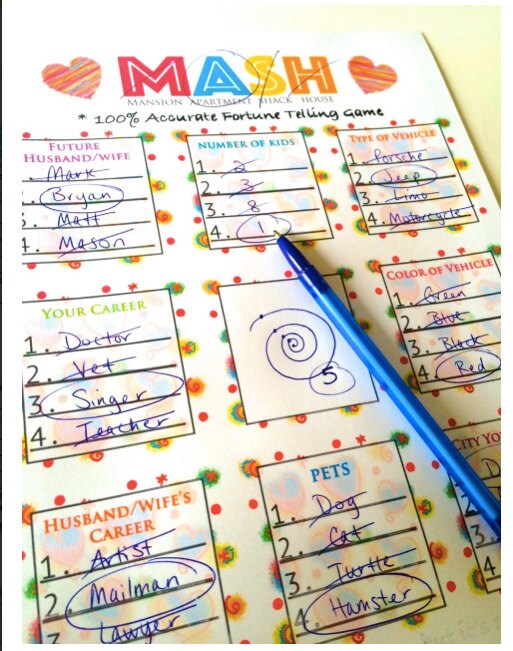 MASH
MANSION APARTMENT SHACK HOUSE
* 100% Accurate Fortune Telling Game
FUTURE
HUSBAND/WIFE
Mark
Bryan
Matt
4. Mason
NUMBER OF KIDS
1. 2
2. 3
3. 8
4. 1
TYPE OF VEHICLE
1. Porsche
2. Jeep
3. Limo
4. Motorcycle
YOUR CAREER
1. Doctor
2. Vet
3. Singer
4. Teacher
5
COLOR OF VEHICLE
1. Green
2. Blue
3. Black
4. Red
HUSBAND/WIFE'S
CAREER
1. Artist
2. Mailman
3. Lawyer
PETS
1. Dog
2. Cat
3. Turtle
4. Hamster
CITY YO
3.
4